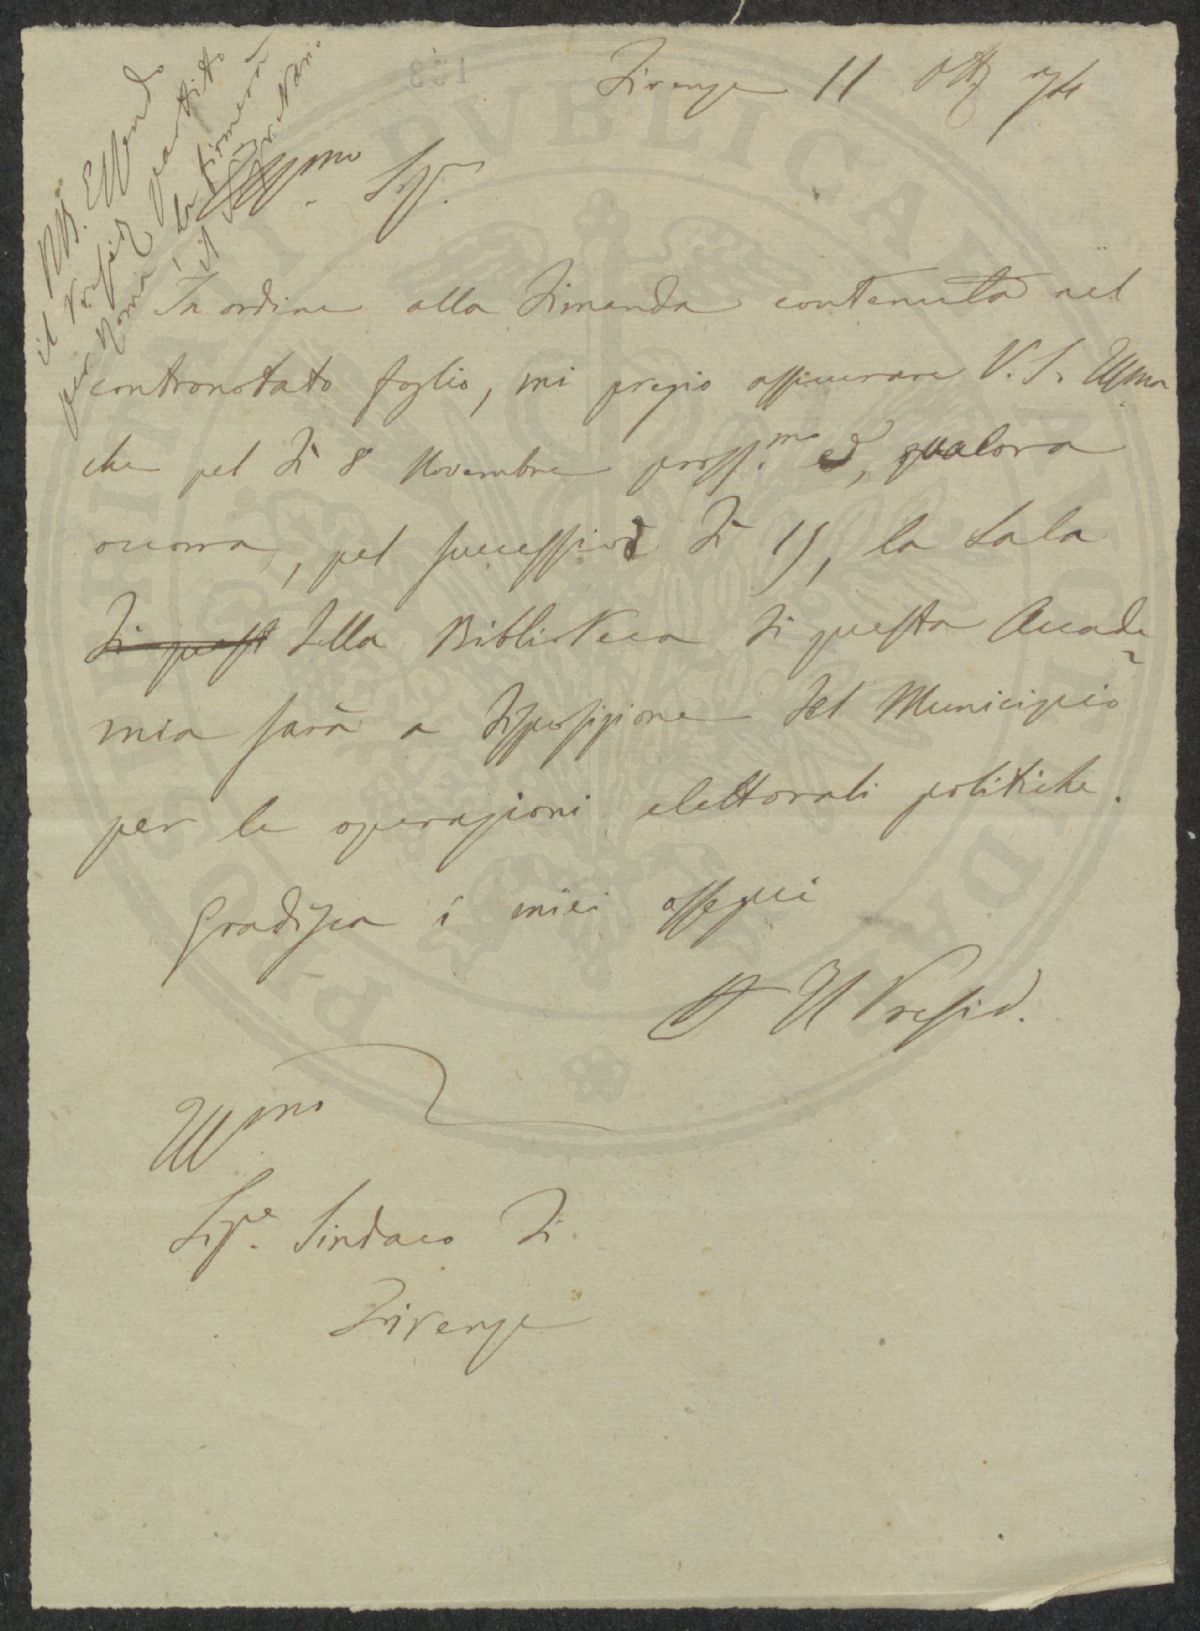 Firenze 11 Ottb 74
NB. Essendo
il Presid partito
per Roma, la firmerà
il Segretario
Illmo Sigr.
In ordine alla dimanda contenuta nel
contronotato foglio, mi pregio assicurare V. S. Illma
che pel dì 8 Novembre pross.mo ed, qualora
occorra, pel successivo dì 15, la Sala
di quest della Biblioteca di questa Accade
mia sarà a disposizione del Municipio
per le operazioni elettorali politiche.
Gradisca i miei ossequi
Il Presid.
Illmo
Sigre. Sindaco di
Firenze